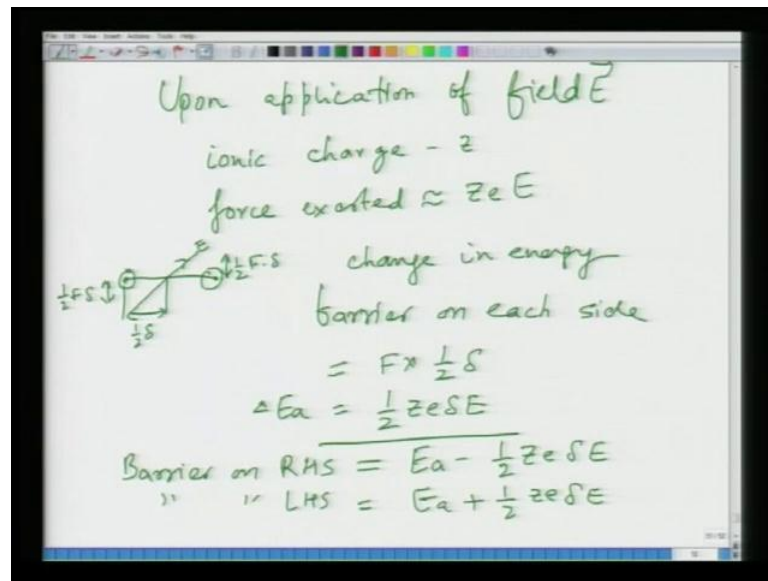 Upon application of field E⃗
ionic charge - z
force exerted ≈ ZeE
E
½Fδ
½F·δ
½δ
change in energy
barrier on each side
= F × ½ δ
ΔEa = ½ zeδE
Barrier on RHS = Ea - ½ zeδE
" " LHS = Ea + ½ zeδE